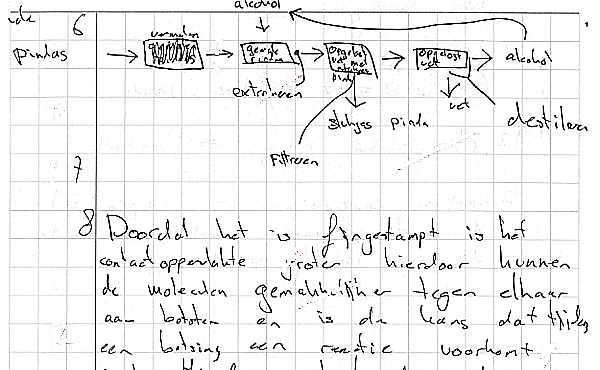 alcohol
6
vermalen
pindas
gemale pindas
opgelost vet met stukjes pinda
opgelost vet
alcohol
extraheren
vet
stukjes pinda
destileren
Filtreren
7
8 Doordat het is fijngestampt is het
contactoppervlakte groter hierdoor kunnen
de moleculen gemakkelijker tegen elkaar
aan botsten en is de kans dat tijdens
een botsing een reactie voorkomt